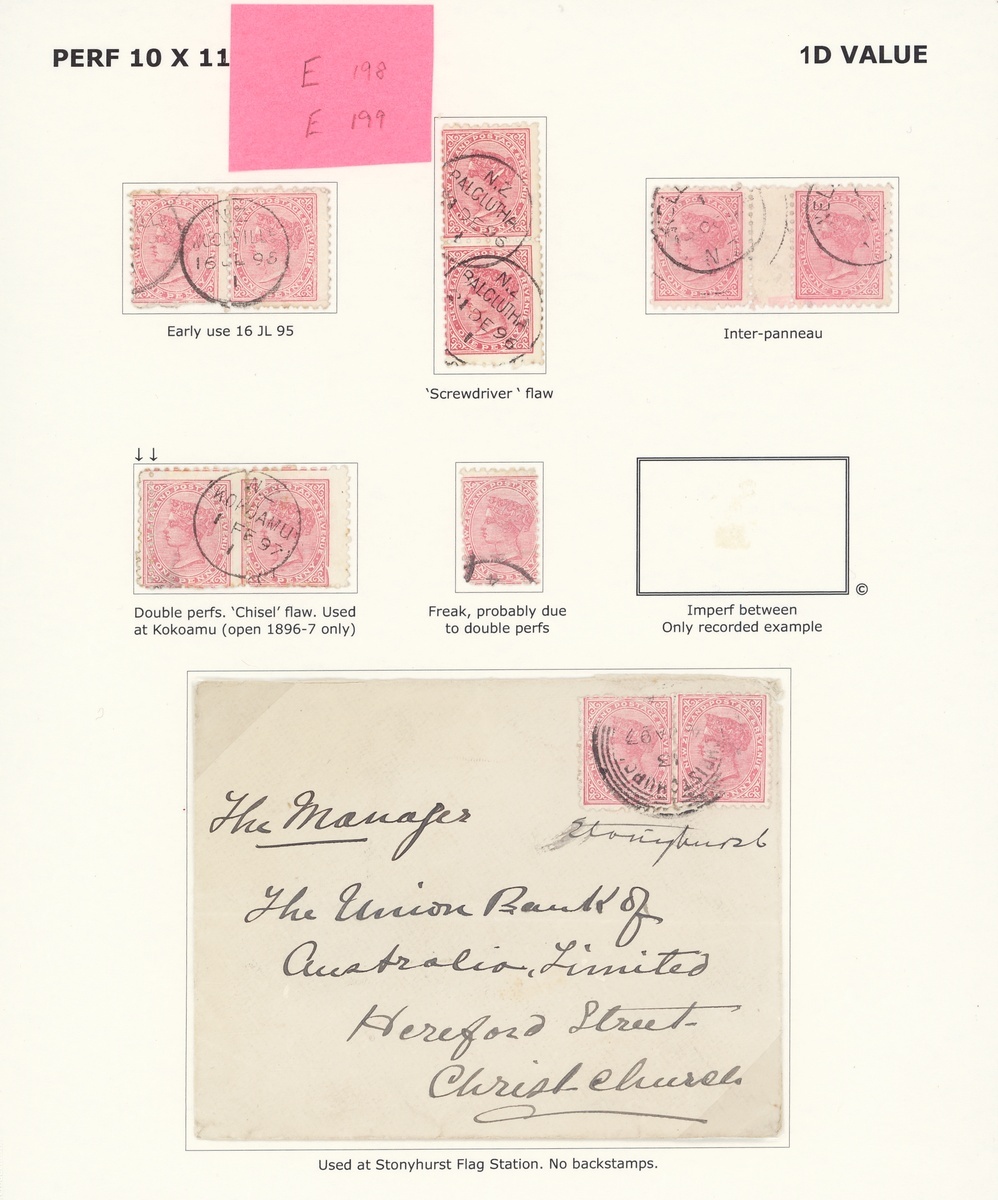 PERF 10 X 11
1D VALUE
E 198
E 199
N.Z
BALCLUTHA
N.Z
BALCLUTHA
1 DE 96
WOODVILLE
16 JL 95
1
Early use 16 JL 95
'Screwdriver ' flaw
N.Z
Inter-panneau
↓↓
N.Z
KOKOAMU
1 FE 97
1
ONE PENNY
Double perfs. 'Chisel' flaw. Used
at Kokoamu (open 1896-7 only)
Freak, probably due
to double perfs
©
Imperf between
Only recorded example
CHRISTCHURCH
13
97
Stonyhurst
The Manager
The Union Bank Of
Australia, Limited
Hereford Street
Christchurch
Used at Stonyhurst Flag Station. No backstamps.